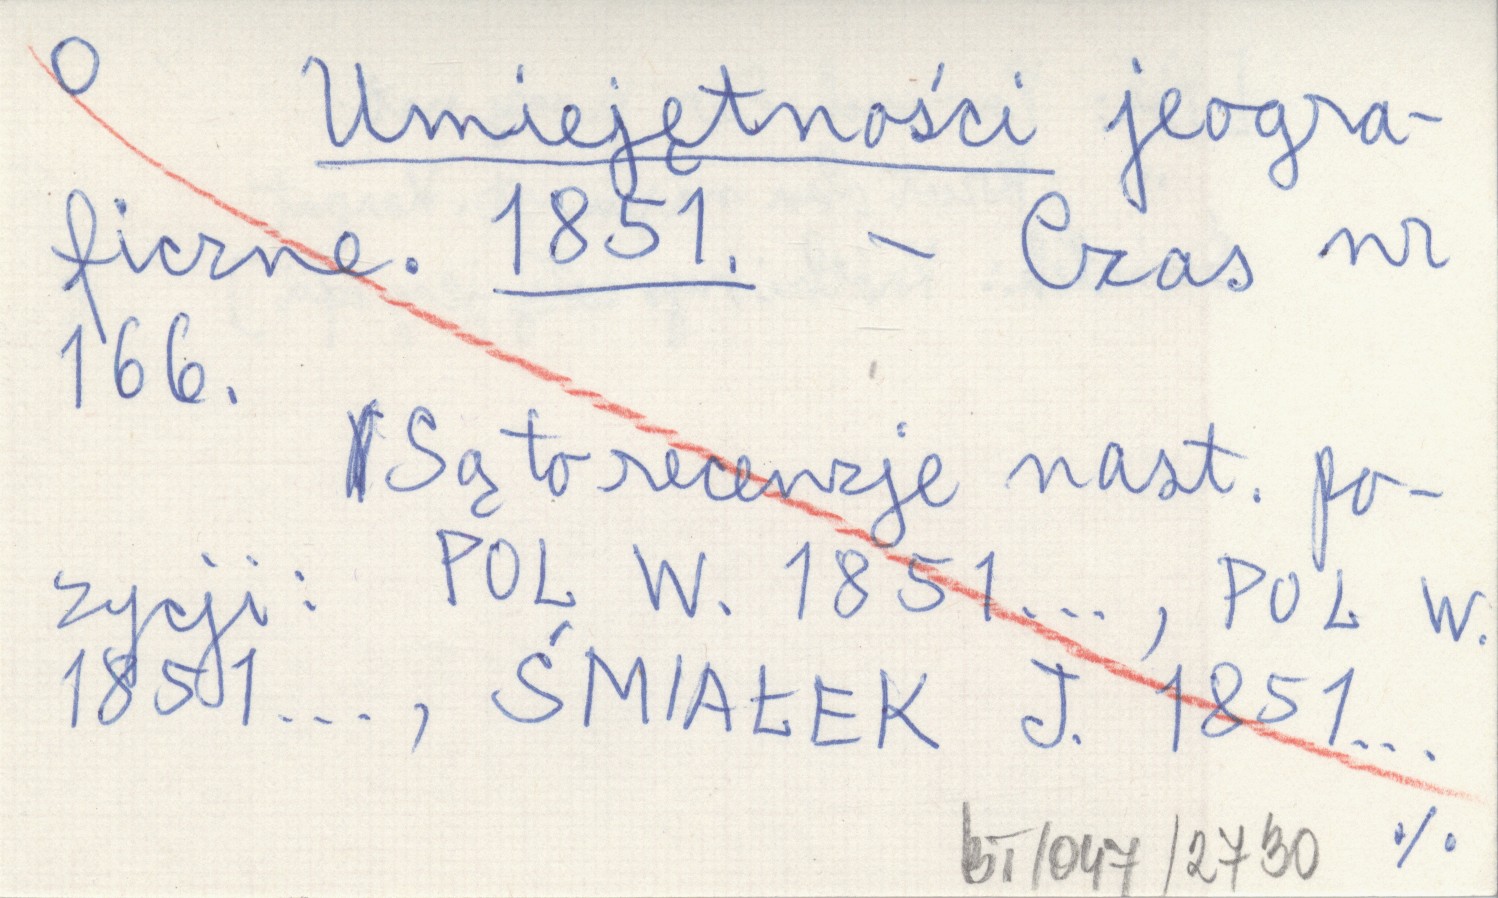 O
Umiejętności jeogra-
ficzne. 1851. – Czas nr
166.
Są to recenzje nast. po-
zycji: POL W. 1851..., POL W.
1851..., ŚMIAŁEK J. 1851...
BI/047/2730 ./.